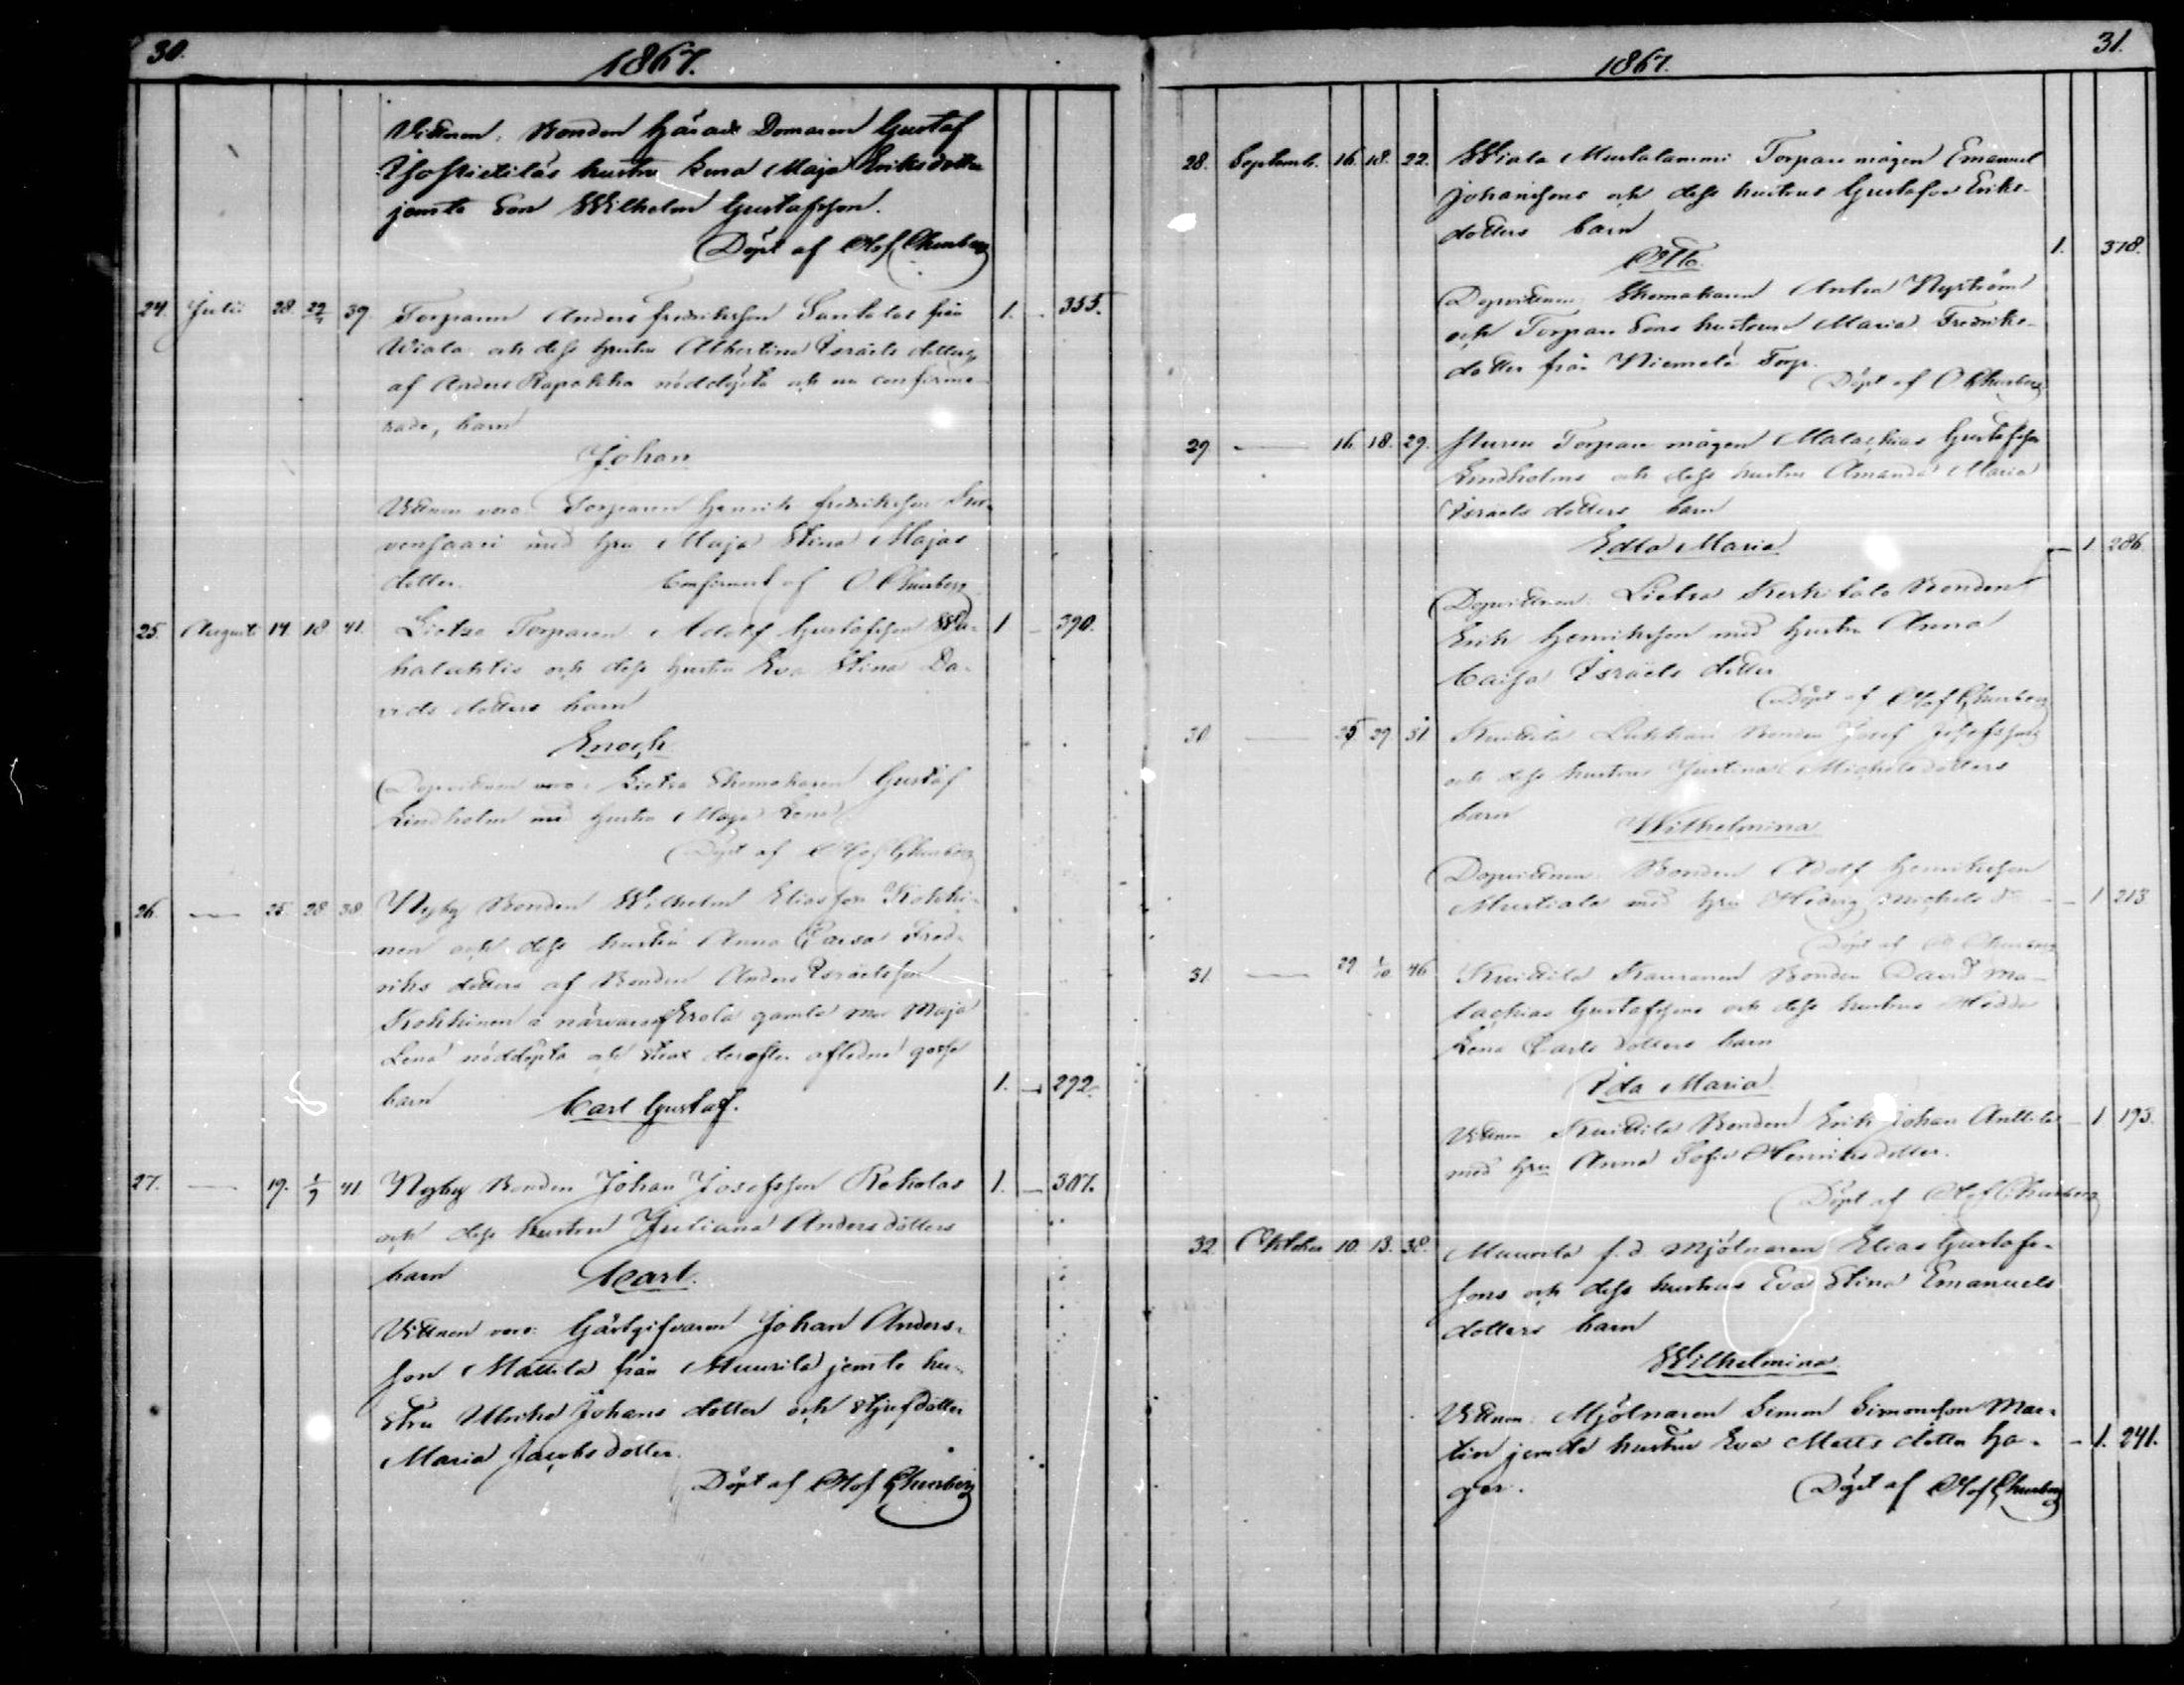 30.
1867.
Vittnen: Bonden Härads Domaren Gustaf
Isopietiläs hustru Lena Maja Eriksdotter
jemte Son Wilhelm Gustafsson.
Döpt af Olof Churberg
24. Julii 28. 22/7 39. Torparen Anders Fredriksson Santalas från 1. - 355.
Wiala och dess hustru Albertina Israels dotters,
af Anders Rapakko nöddöpta och nu confirme-
rade, barn
Johan
Vittnen voro: Torparen Henrik Fredriksson
vensaari med hru Maja Stina Majas
dotter. Confirmert af O. Churberg
25. Augusti 14. 18 41. Lietsa Torparen Adolf Gustafsson 1 - 390.
halahtis och dess hustru Eva Stina Da-
vids dotters barn
Enoch
Dopvittnen voro: Lietsa Skomakaren Gustaf
Lindholm med hustru Maja Lena
Döpt af Olof Churberg
26. — 25. 28 38. Nyby Bonden Wilhelm Eliasson Kokki-
nen och dess hustru Anna Caisa Fred-
riks dotters af Bonden Anders Israelsson
Kokkinen i närvaro af Erola gamla mor Maja
Lena nöddöpta och strax derefter aflidne gosse
barn Carl Gustaf. 1. - 292.
27. — 19. 1/9 41 Nyby Bonden Johan Josefsson Rekolas 1. - 307.
och dess hustru Juliana Anders dotters
barn Carl.
Vittnen voro: Gästgifvaren Johan Anders-
son Mattila från Muurila jemte hu-
stru Ulrika Johans dotter och Stjufdotter
Maria Jacobs dotter.
Döpt af Olof Churberg
31.
1867.
28. Septemb. 16. 18. 22. Wiala Mustalammi Torpare mågen Emanuel
Johanssons och dess hustrus Gustafva Eriks-
dotters barn
Otto. 1. 318.
Dopvittnen: Skomakaren Anton Nyström
och Torpare Sons hustrun Maria Fredriks-
dotter från Niemelä Torp.
Döpt af O Churberg
29 — 16. 18. 29. Torpare mågen Malachias Gustafsson
Lindholms och dess hustru Amanda Maria
Israels dotters barn
Edla Maria — 1 286
Dopvittnen: Lietsa Kerkkola Bonden
Erik Henriksson med hustru Anna
Caisa Israels dotter
Döpt af Olof Churberg
30 — 25 29 31. Kuittila Bonden Josef Josefssons
och dess hustrus Justina Michelsdotters
barn Wilhelmina
Dopvittnen: Bonden Adolf Henriksson
Mustiala med hru Hedvig Michels dr - 1 213
Döpt af O Churberg
31. — 29 1/10 46 Kuittila Kauranen Bonden David Ma-
lachias Gustafssons och dess hustrus Hedda
Lena Carls dotters barn
Ida Maria
Vittnen Kuittila Bonden Erik Johan Anttila - 1 193.
med hru Anna Sofia Henriksdotter.
Döpt af Olof Churberg
32. Oktober 10. 13. 38. Muurila f.d. Mjölnaren Elias Gustafs-
sons och dess hustrus Eva Stina Emanuels
dotters barn
Wilhelmina
Vittnen: Mjölnaren Simon Simonsson Mar-
tin jemte hustru Eva Matts dotter Ha- - 1. 241.
gar. Döpt af Olof Churberg